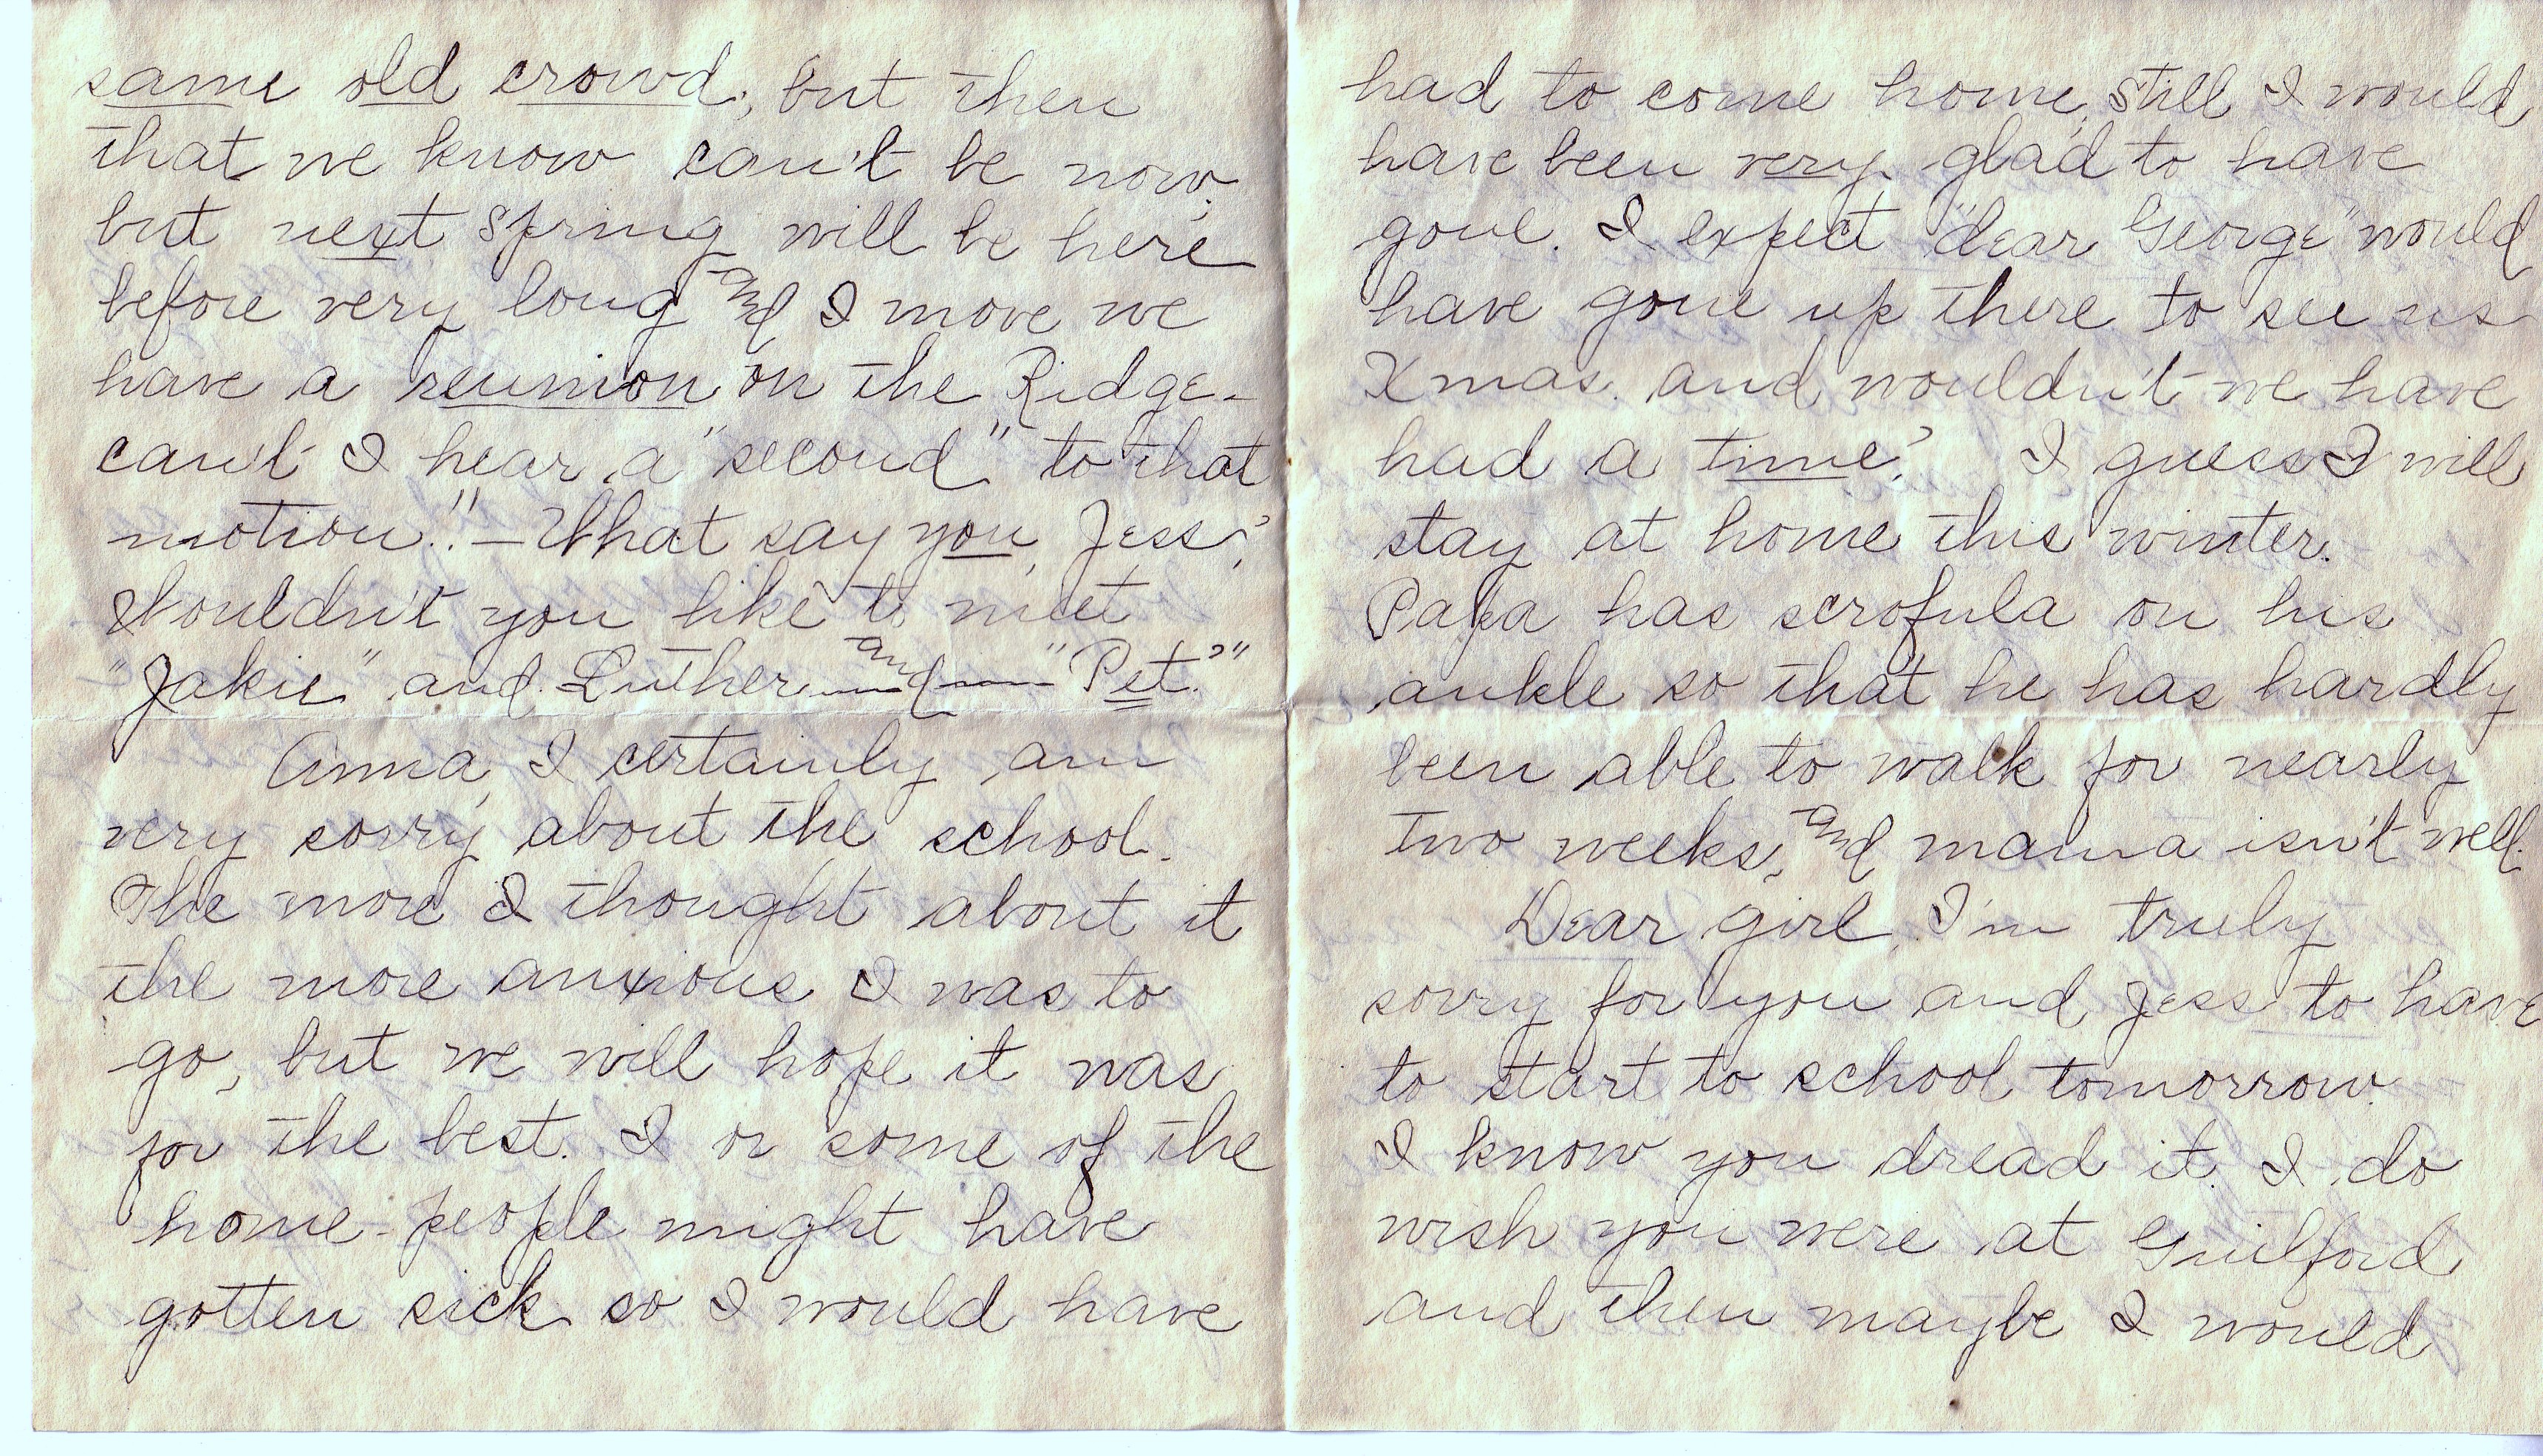 same old crowd; but then
that we know can't be now,
but next spring will be here
before very long and I move we
have a reunion on the Ridge-
can't I hear a "second" to that
motion!! - What say you, Jess?
Wouldn't you like to meet
"Jakie" and Luther — and — "Pet?"
Anna, I certainly am
very sorry about the school.
The more I thought about it
the more anxious I was to
go, but we will hope it was
for the best. I or some of the
home-people might have
gotten sick so I would have
had to come home, still I would
have been very glad to have
gone. I expect "dear George" would
have gone up there to see us
Xmas. and wouldn't we have
had a time? I guess I will
stay at home this winter.
Papa has scrofula on his
ankle so that he has hardly
been able to walk for nearly
two weeks, and mama isn't well.
Dear girl, I'm truly
sorry for you and Jess to have
to start to school tomorrow.
I know you dread it. I do
wish you were at Guilford
and then maybe I would